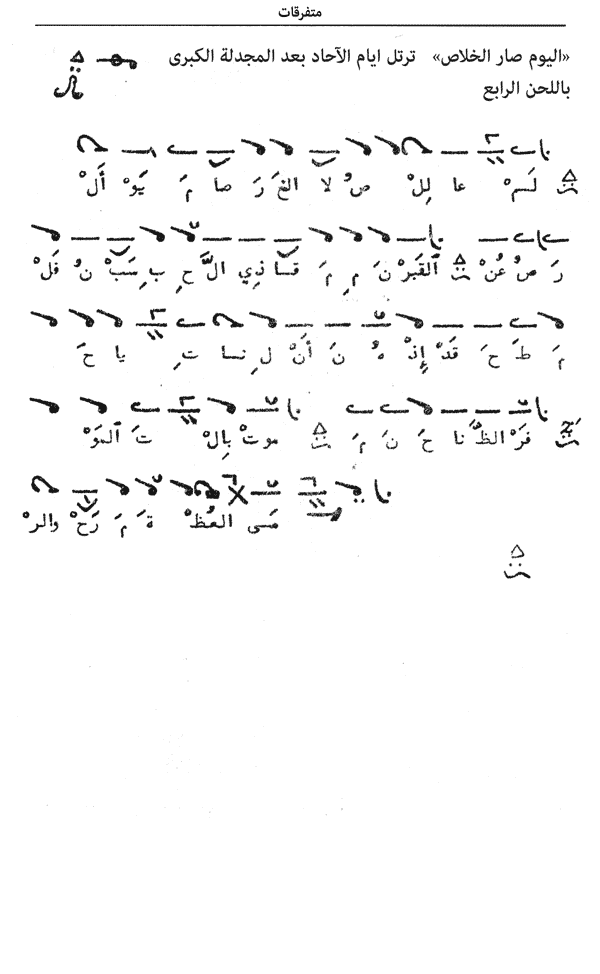 متفرقات
«اليوم صار الخلاص» ترتل ايام الآحاد بعد المجدلة الكبرى
باللحن الرابع
أَلْ يَوْ مَ صا رَ الخَ لا صُ لِلْ عا لَمْ
فَلْ نُ سَبْ بِ حِ الَّ ذِي قا مَ مِ نَ ٱلقَبْ عُنْ صُ رَ
حَ يا تِ نا لِ أَنْ نَ هُ إِذْ قَدْ حَ طَ مَ
ٱلمَوْ تَ بِالْ موتْ مَ نَ حَ نا الظَّ فَرْ
والرْ رَحْ مَ ةَ العُظْ مَى